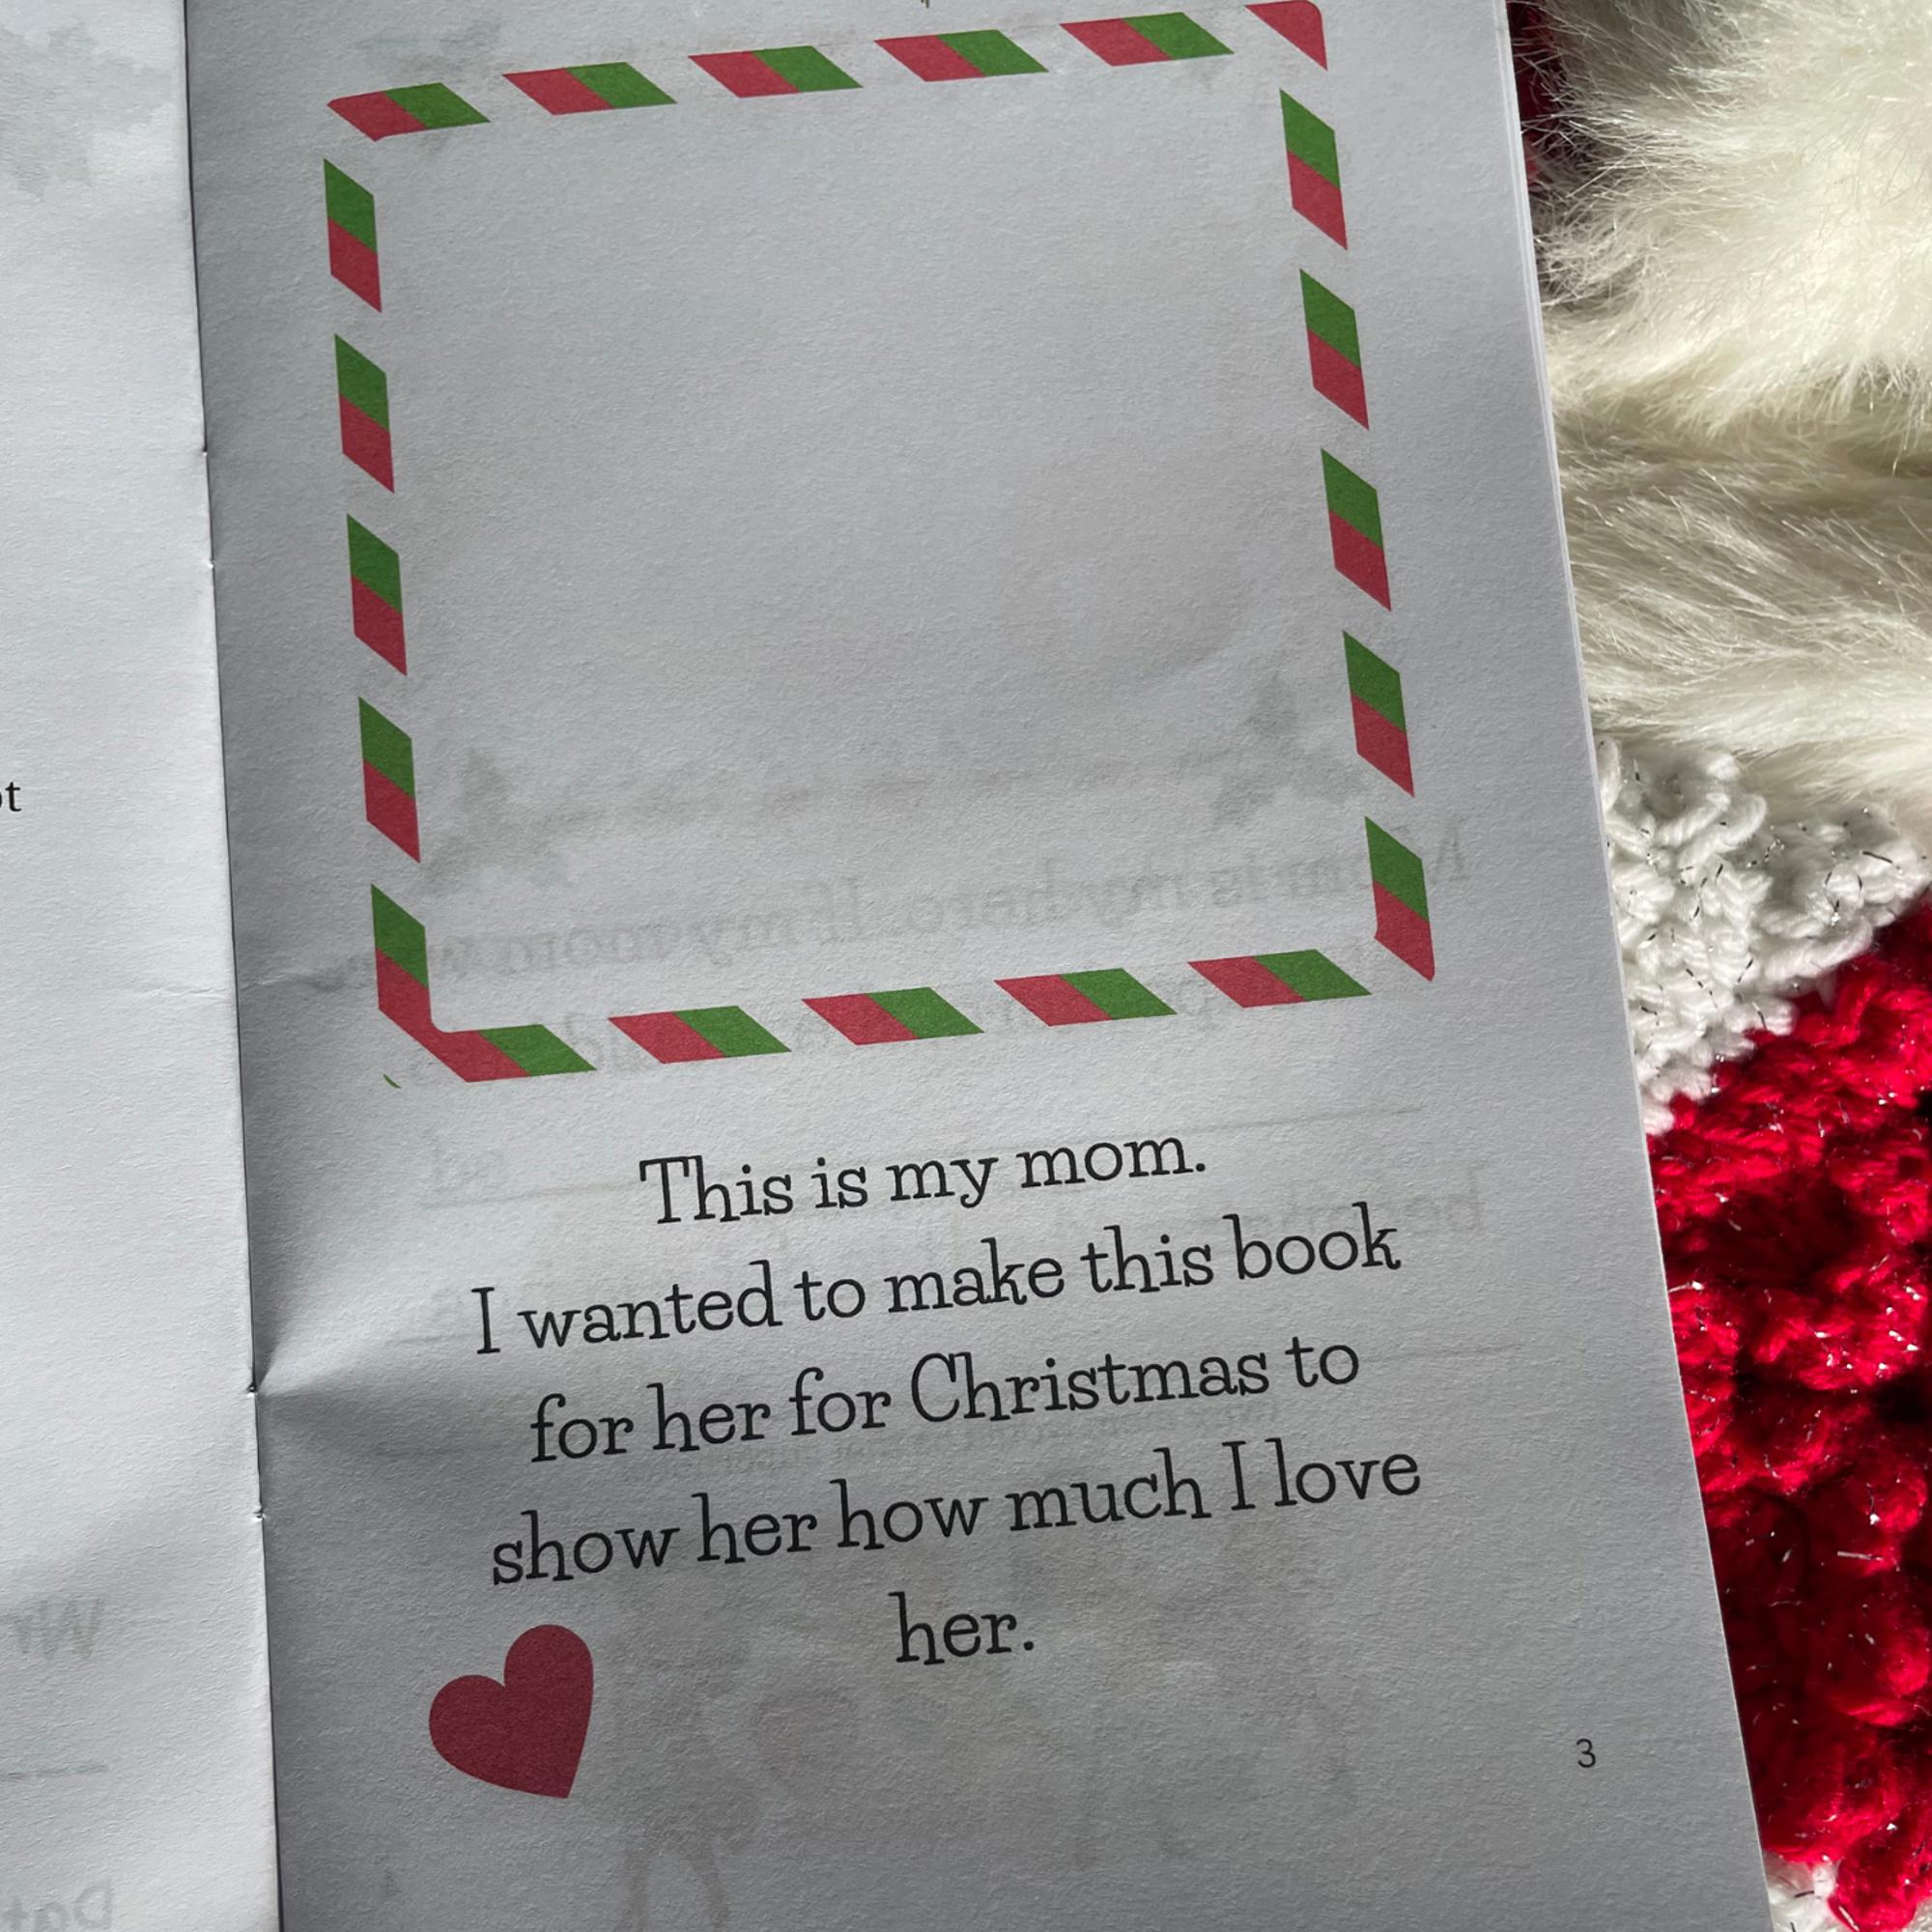 This is my mom.
I wanted to make this book
for her for Christmas to
show her how much I love
her.
3